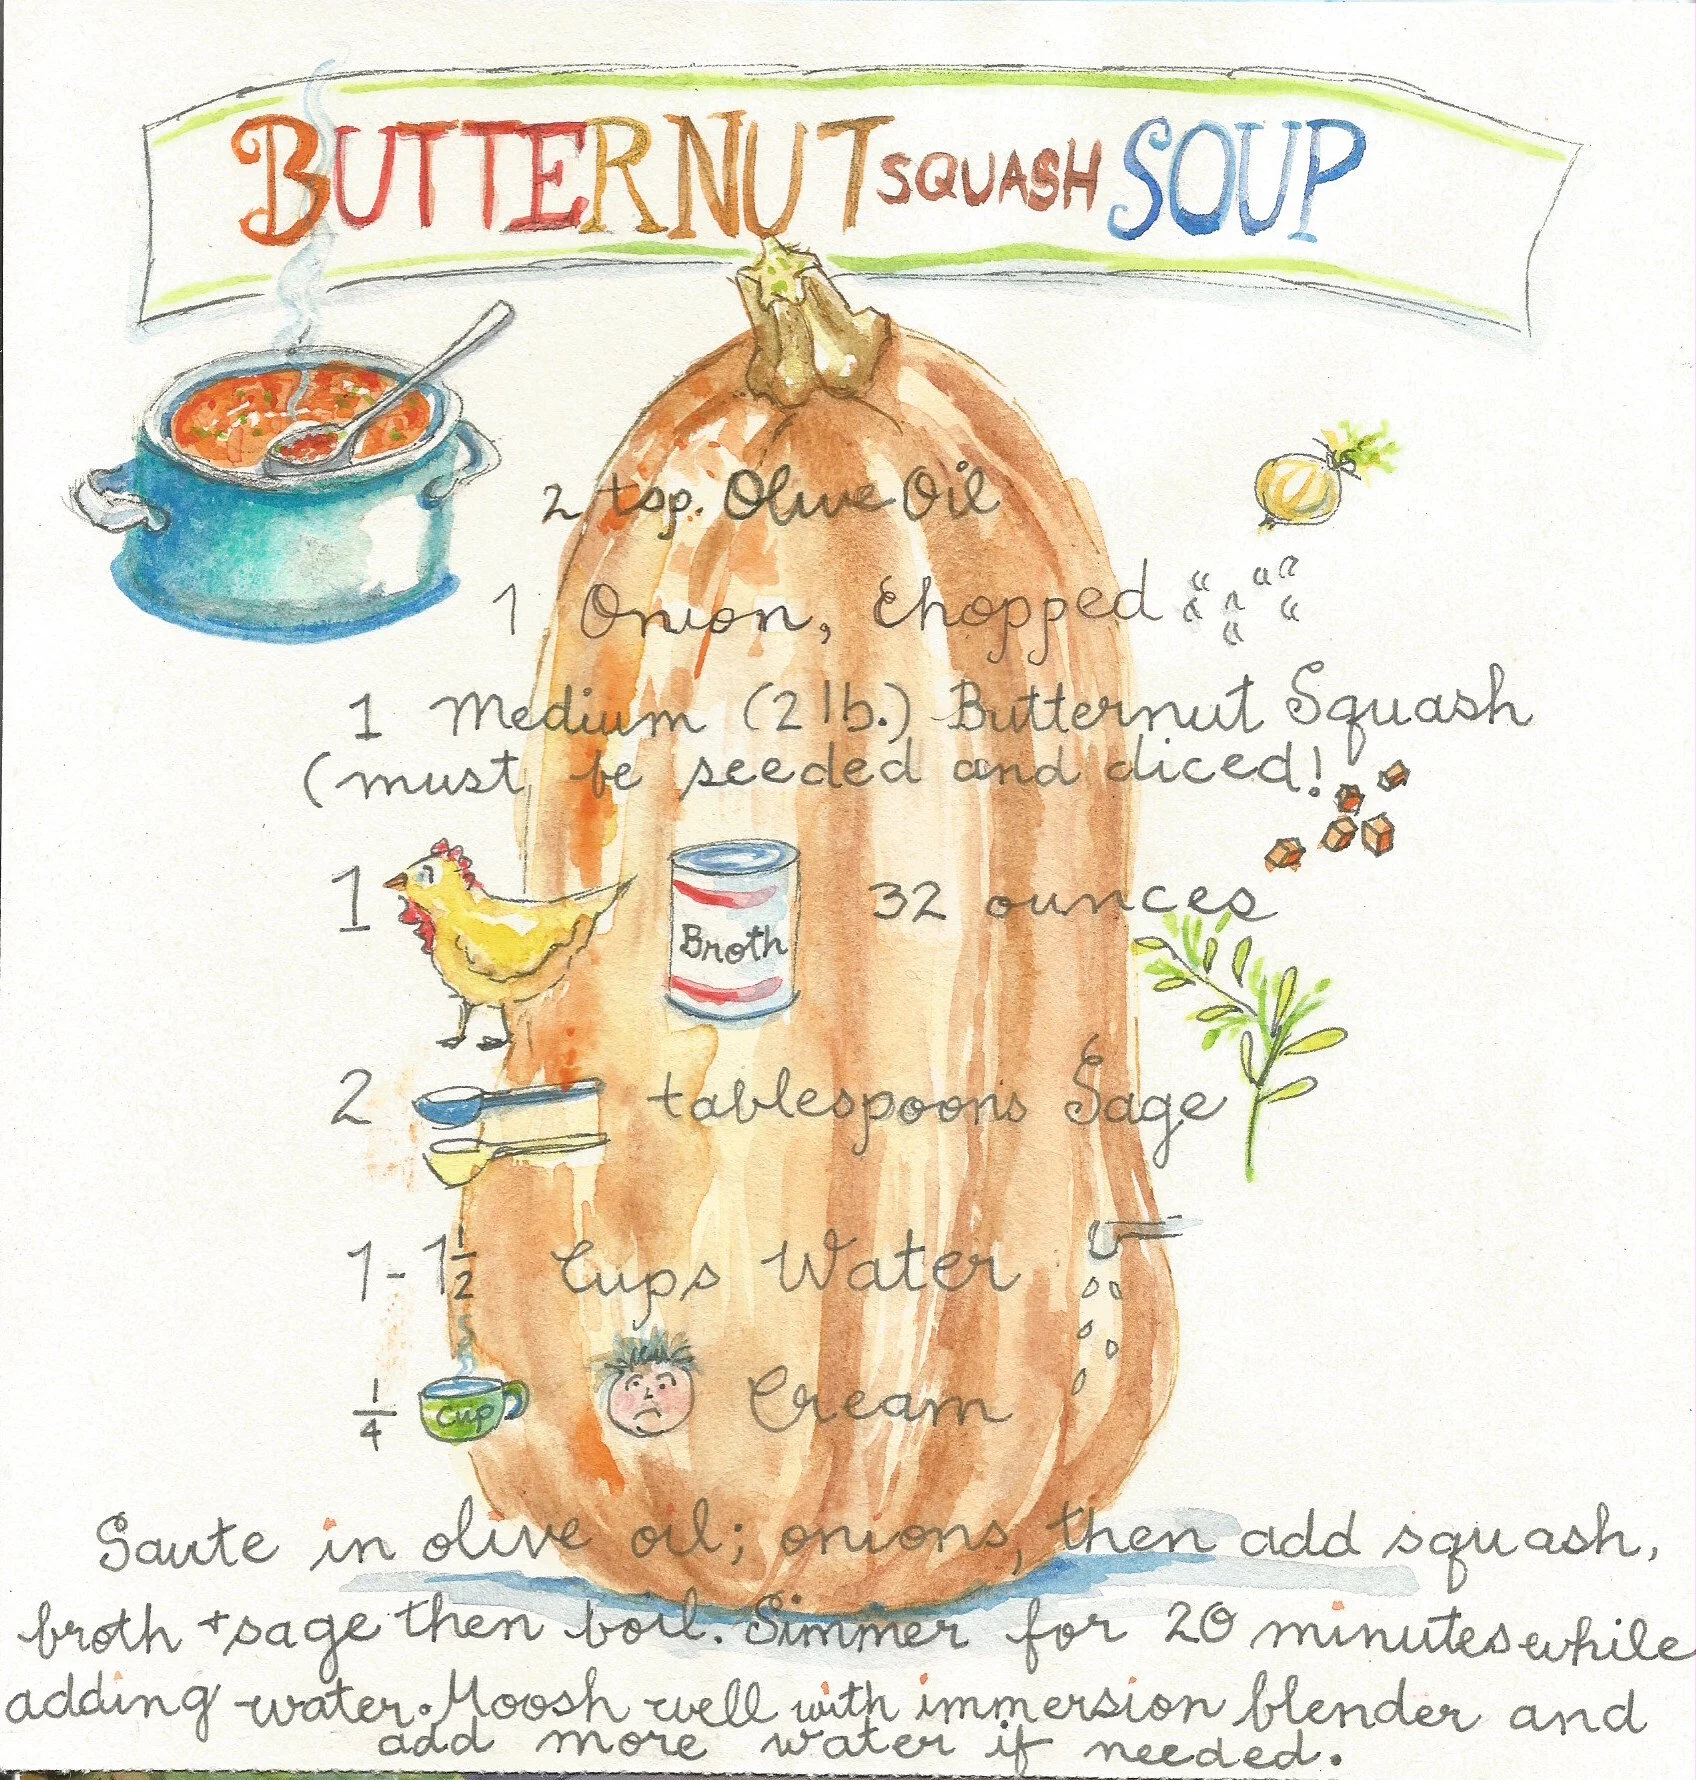 BUTTERNUT SQUASH SOUP
2 tsp. Olive Oil
1 Onion, Chopped
1 Medium (2 lb.) Butternut Squash
(must be seeded and diced!
1 Broth 32 ounces
2 tablespoons Sage
1-1 1/2 Cups Water
1/4 Cup Cream
Saute in olive oil; onions, then add squash,
broth + sage then boil. Simmer for 20 minutes while
adding water. Moosh well with immersion blender and
add more water if needed.